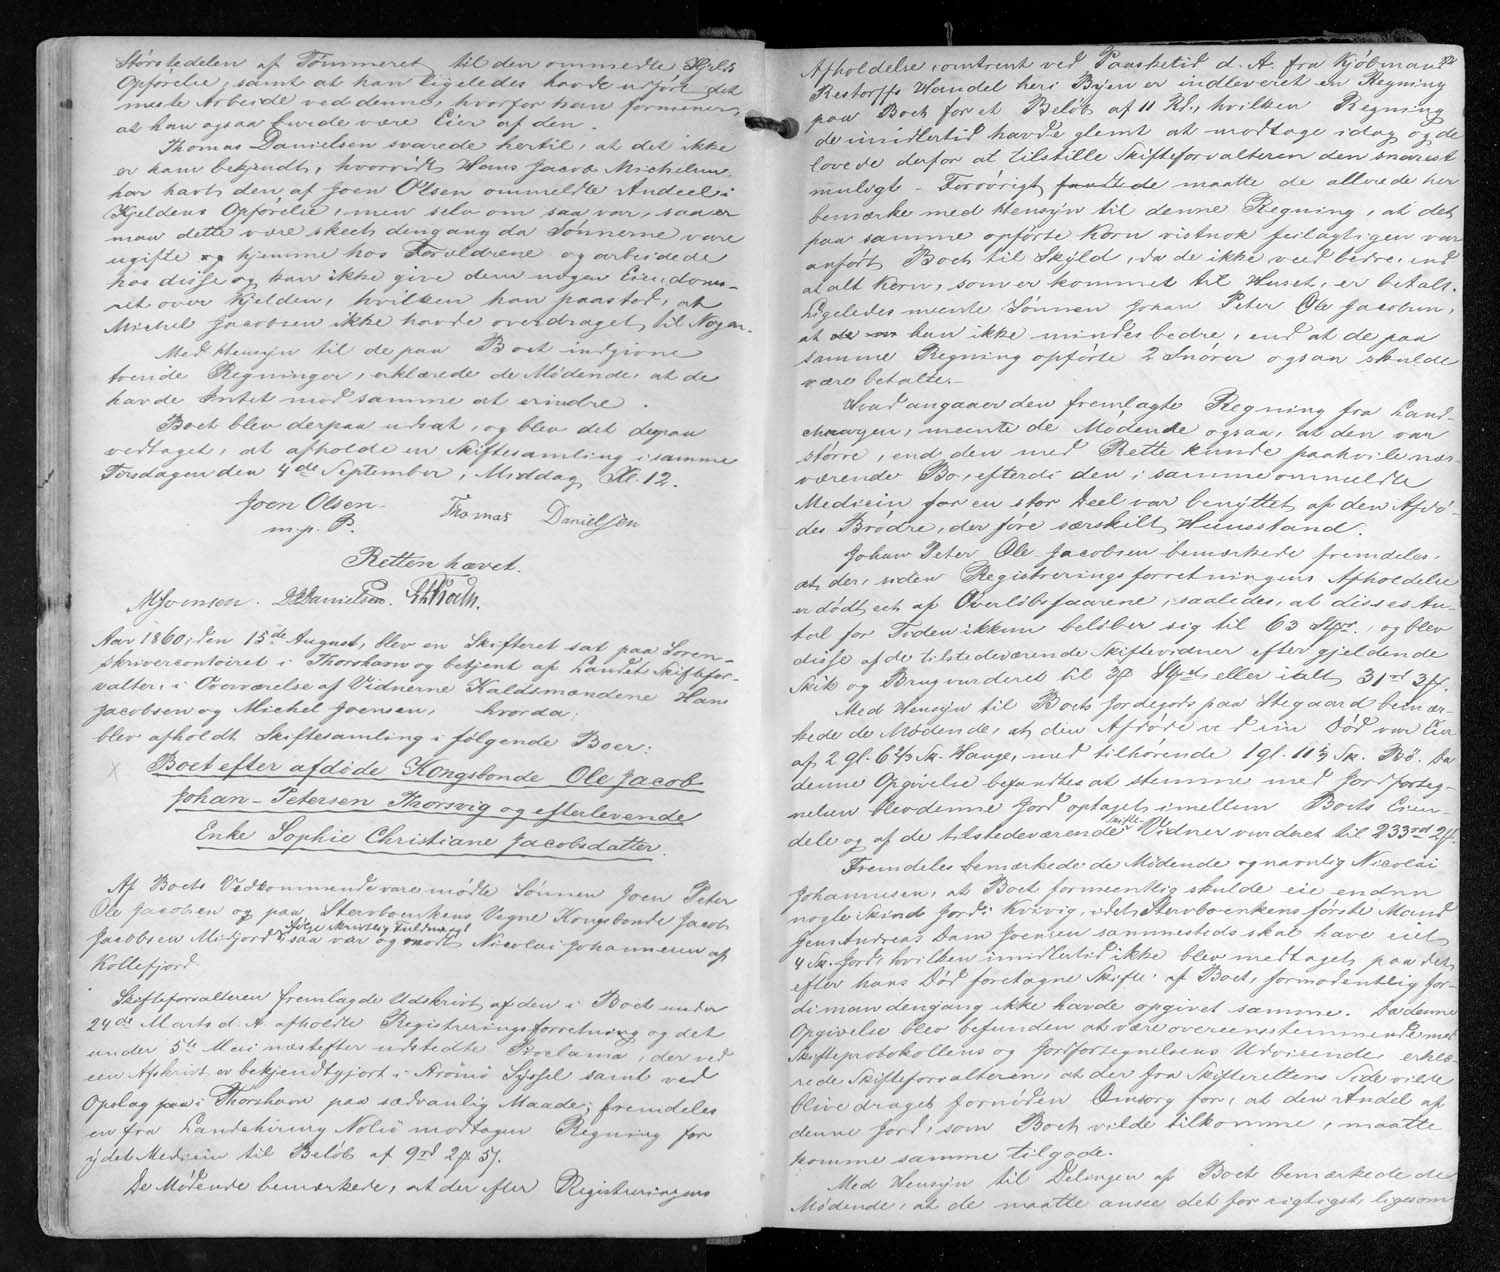 Störstedelen af Tømmeret til den ommeldte Hjelds
Opførelse, samt at han ligeledes havde udført det
meste Arbeide ved denne, hvorfor han formener,
at han ogsaa burde være Eier af den.
Thomas Danielsen svarede hertil, at det ikke
er ham bekjendt, hvorvidt Hans Jacob Michelsen
har havt den af Joen Olsen ommeldte Andeel i
Kjeldens Opførelse, men selv om saa var, saa er
maa dette være skeet dengang da Sønnerne vare
ugifte og hjemme hos Forældrene og arbeidede
hos disse og kan ikke give dem nogen Eiendoms-
ret over Kjelden, hvilken han paastod, at
Michel Jacobsen ikke havde overdraget til Nogen.
Med Hensyn til de paa Boet indgivne
tvende Regninger, erklærede de Mødende, at de
havde Intet mod samme at erindre.
Boet blev derpaa udsat, og blev det derpaa
vedtaget, at afholde en Skiftesamling i samme
Torsdagen den 4de September, Middag Kl. 12.
Joen Olsen Thomas Danielsen
m. p. P.
Retten hævet.
MJoensen. DDanielsen.
Aar 1860, den 15de August, blev en Skifteret sat paa Soren-
skrivercontoiret i Thorshavn og betjent af Landets Skiftefor-
valter, i Overværelse af Vidnerne Kaldsmændene Hans
Jacobsen og Michel Joensen, hvorda:
blev afholdt Skiftesamling i følgende Boer:
Boet efter afdøde Kongsbonde Ole Jacob
Johan-Petersen Thorsvig og efterlevende
Enke Sophie Christiane Jacobsdatter.
Af Boets Vedkommende vare mødte Sønnen Joen Peter
Ole Jacobsen og paa Stervboenkens Vegne Kongsbonde Jacob
Jacobsen Midfjord ifølge skriftlig Fuldmagt
saa var og mødt Nicolai Johannesen af
Kollefjord.
Skifteforvalteren fremlagde Udskrivt af den i Boet under
24de Marts d. A. afholdte Registreringsforretning og det
under 5te Mai næstefter udstedte Proclama, der ved
een Afskrivt er bekjendtgjort i Strömö Syssel samt ved
Opslag paa i Thorshavn paa sædvanlig Maade; fremdeles
en fra Landchirurg Nolsö modtagen Regning for
ydet Medicin til Beløb af 9rd 2ß 5/.
De Mødende bemærkede, at der efter Registreringens
Afholdelse, omtrent ved Paasketid d. A. fra Kjøbmand
Restorffs Handel her i Byen er indleveret en Regning
paa Boet for et Beløb af 11 Rd., hvilken Regning
de imidlertid havde glemt at modtage idag og de
lovede derfor at tilstille Skifteforvalteren den snarest
muligt. Forøvrigt de maatte de allerede her
bemærke med Hensyn til denne Regning, at det
paa samme opførte Korn vistnok feilagtigen var
anført Boet til Skyld, da de ikke veed bedre, end
at alt Korn, som er kommet til Huset, er betalt.
Ligeledes meente Sønnen Johan Peter Ole Jacobsen,
at han ikke mindes bedre, end at de paa
samme Regning opførte 2 Snører ogsaa skulde
være betalte.
Hvad angaaer den fremlagte Regning fra Land-
chirurgen, meente de Mødende ogsaa, at den var
større, end den med Rette kunde paahvile nær-
værende Bo, efterdi den i samme ommeldte
Medicin for en stor Deel var benyttet af den Afdø-
des Brødre, der føre særskilt Huusstand.
Johan Peter Ole Jacobsen bemærkede fremdeles,
at der, siden Registreringsforretningens Afholdelse
er dødt eet af Overløbsfaarene, saaledes, at disses An-
tal for Tiden ikkun beløber sig til 63 Styk., og blev
disse af de tilstedeværende Skiftevidner efter gjeldende
Skik og Brug vurderet til 3ß Styket, eller ialt 31rd 3ß.
Med Hensyn til Boets Jordegods paa Stegaard bemær-
kede de Mødende, at den Afdøde ved sin Død var Eier
af 2 gl. 6 2/3 Sk. Hauge, med tilhørende 1 gl. 11 1/3 Sk. Bø. Da
denne Opgivelse befandtes at stemme med Jordforteg-
nelsen blev denne Jord optaget imellem Boets Eien-
dele og af de tilstedeværende Skifte-Vidner vurderet til 233rd 2ß.
Fremdeles bemærkede de Mødende og navnlig Nicolai
Johannesen, at Boet formeentlig skulde eie endnu
nogle Skind Jord i Kvivig, idet Stervboenkens første Mand
Jens Andreas Dam Joensen sammesteds skal have eiet
4 Sk. Jord, hvilken imidlertid ikke blev medtaget paa det
efter hans Død foretagne Skifte af Boet, formodentlig for-
di man dengang ikke havde opgivet samme. Da denne
Opgivelse blev befunden at være overeensstemmende med
Skifteprotokollens og Jordfortegnelsens Udvisende, erklæ-
rede Skifteforvalteren, at der fra Skifterettens Side vilde
blive draget fornøden Omsorg for, at den Andel af
denne Jord, som Boet vilde tilkomme, maatte
komme samme tilgode.
Med Hensyn til Delingen af Boet bemærkede de
Mødende, at de maatte ansee det for rigtigst, ligesom